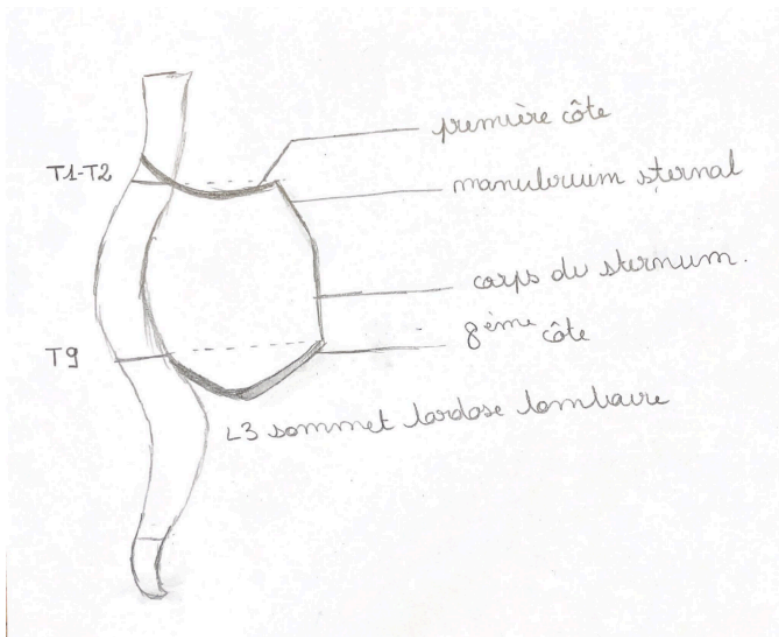 première côte
T1-T2
manubruim sternal
corps du sternum.
8ème côte
T9
L3 sommet lordose lombaire